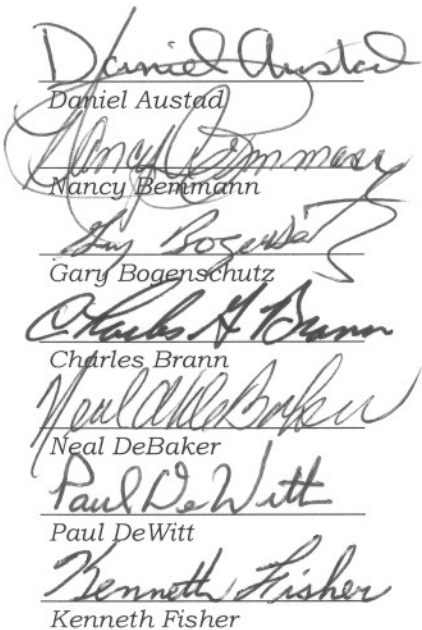 Daniel Austad
Daniel Austad
Nancy Bemmann
Nancy Bemmann
Gary Bogenschutz
Charles G Brann
Charles Brann
Neal A DeBaker
Neal DeBaker
Paul DeWitt
Paul DeWitt
Kenneth Fisher
Kenneth Fisher